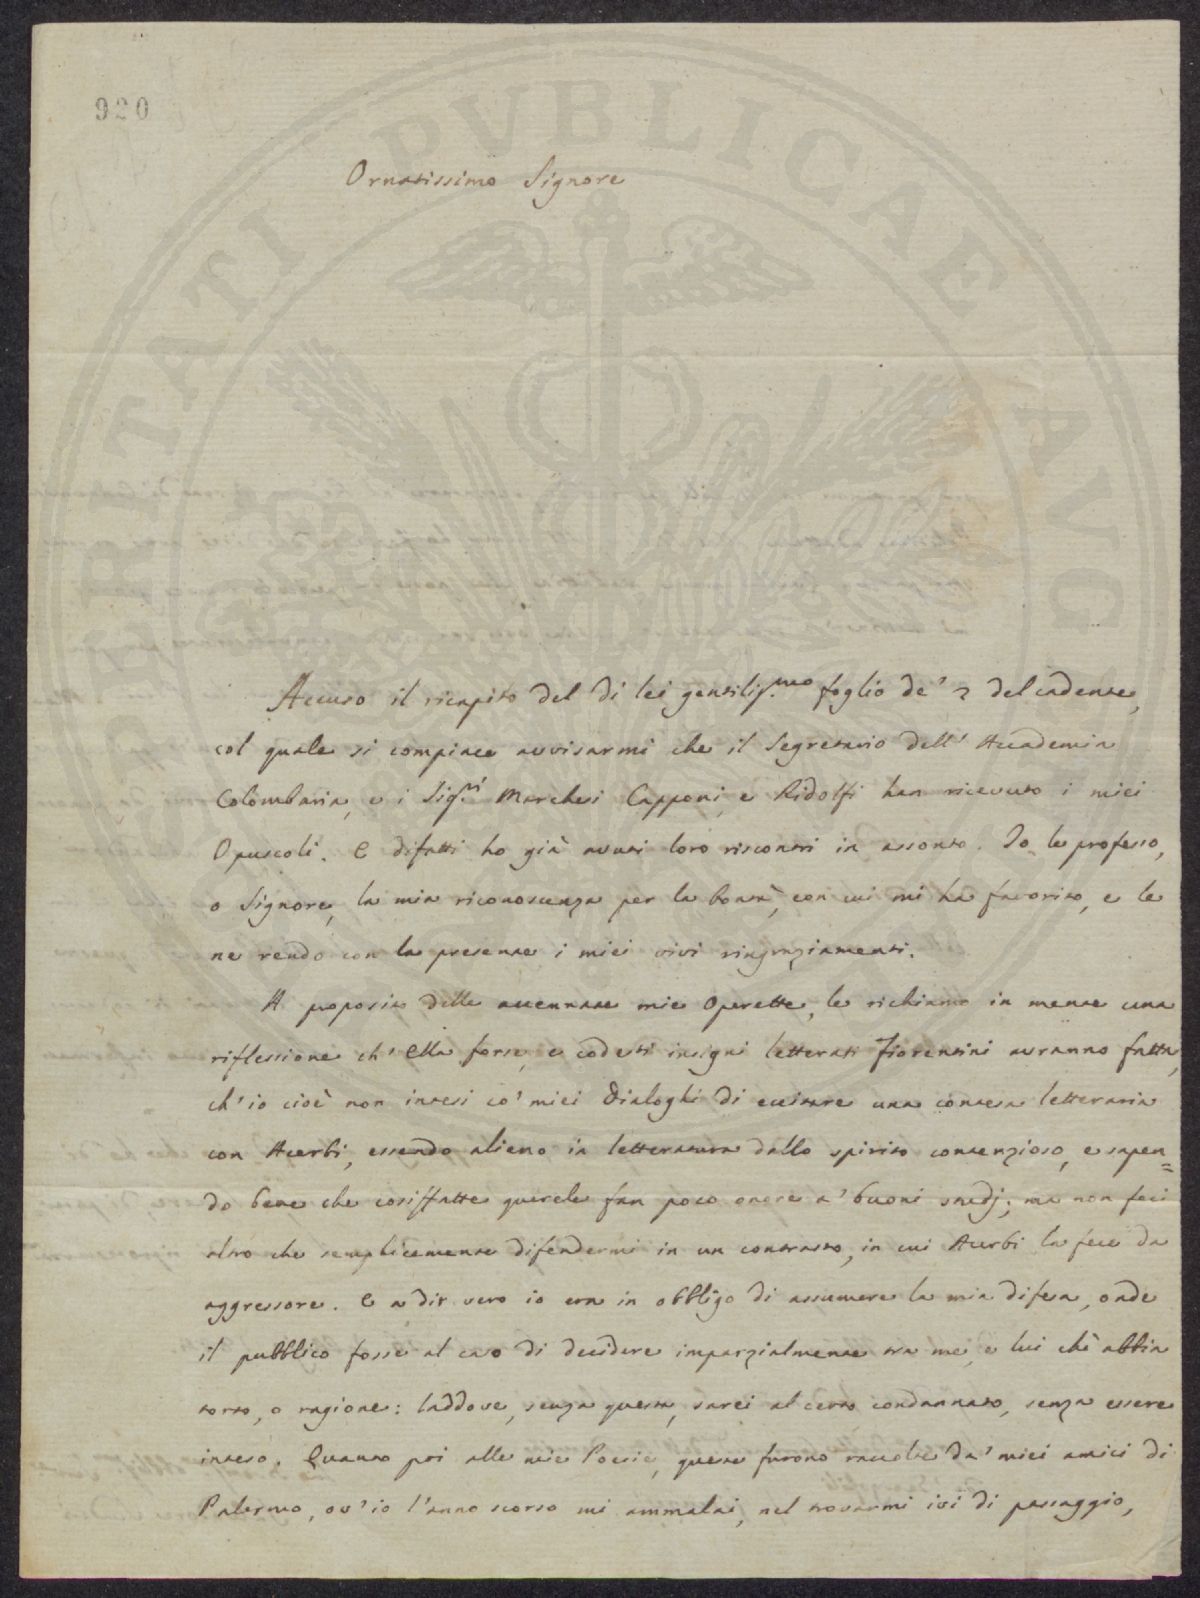 920
PVBLICAE
Ornatissimo Signore
Accuso il ricapito del di lei gentilis.mo foglio de' 2 del cadente,
col quale si compiace avvisarmi che il Segretario dell' Accademia
Colombaria, e i Sig.ri Marchesi Capponi, e Ridolfi han ricevuto i miei
Opuscoli. E difatti ho già avuti loro riscontri in assonto. Io le professo,
o Signore, la mia riconoscenza per la bontà, con cui mi ha favorito, e le
ne rendo con la presente i miei vivi ringraziamenti.
A proposito delle accennate mie Operette, le richiamo in mente una
riflessione ch' Ella forse, e codesti insigni letterati Fiorentini avranno fatta,
ch' io cioè non intesi co' miei Dialoghi di eccitare una contesa letteraria
con Acerbi, essendo alieno in letteratura dallo spirito contenzioso, e sapen=
do bene che cosiffatte querele fan poco onore a' buoni studj; ma non feci
altro che semplicemente difendermi in un contrasto, in cui Acerbi la fece da
aggressore. E a dir vero io era in obbligo di assumere la mia difesa, onde
il pubblico fosse al caso di decidere imparzialmente tra me, e lui chi abbia
torto, o ragione: laddove, senza questa, sarei al certo condannato, senza essere
inteso. Quanto poi alle mie Poesie, queste furono raccolte da' miei amici di
Palermo, ov' io l'anno scorso mi ammalai, nel trovarmi ivi di passaggio,